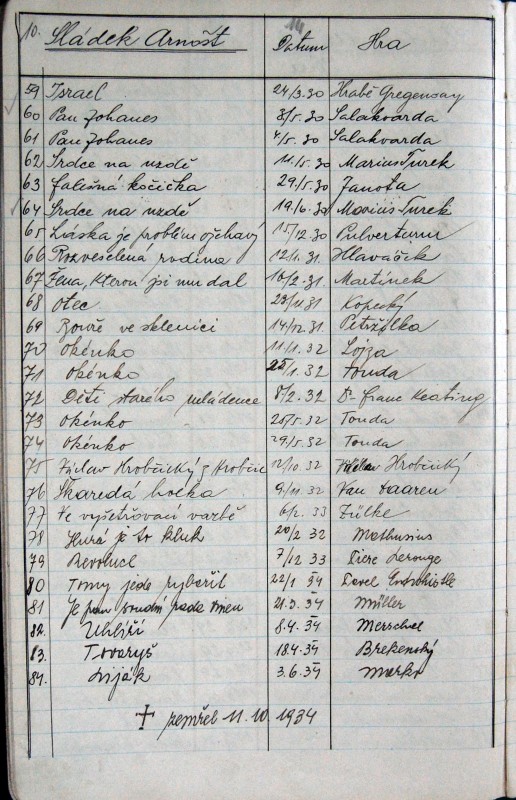 10. Sládek Arnošt Datum Hra
59 Israel 24/3.30 Hrabě Gregensay
60 Pan Johanes 3/5.30 Salakvarda
61 Pan Johanes 4/5.30 Salakvarda
62 Srdce na uzdě 11/5.30 Marius Turek
63 falešná kočička 29/5.30 Janota
64 Srdce na uzdě 19/6.30 Marius Turek
65 Láska je problém ožehavý 15/12.30 Pulverturm
66 Rozveselena rodina 12/1.31. Hlaváček
67 Žena, kterou jsi mu dal 10/2.31. Martinek
68 Otec 23/11.31 Kopecký
69 Bouře ve sklenici 14/12.31. Petržilka
70 Okénko 11/1.32 Lojza
71 Okénko 25/1.32 Tonda
72 Děti starého mládence 8/2.32 Dr franc Keating
73 Okénko 25/5.32 Tonda
74 Okénko 29/5.32 Tonda
75 Václav Hrobčický z Hrobčic 12/10.32 Václav Hrobčický
76 Škaredá holka 9/11.32 Van Haaren
77 Ve vyšetřovací vazbě 6/2.33 Zülke
78 Hurá je to kluk 20/2 32 Mathusius
79 Revoluce 7/12 33 Piere Lerouge
80 Tomy jede rybařit 22/1 34 Pavel
81 Je pan soudní rada vinen 21.3.34 Müller
82. Uhlíři 8.4.34 Merschel
83. Tovaryš 18.4.34 Brekenský
84. Liják 3.6.34 Marko
† zemřel 11.10.1934